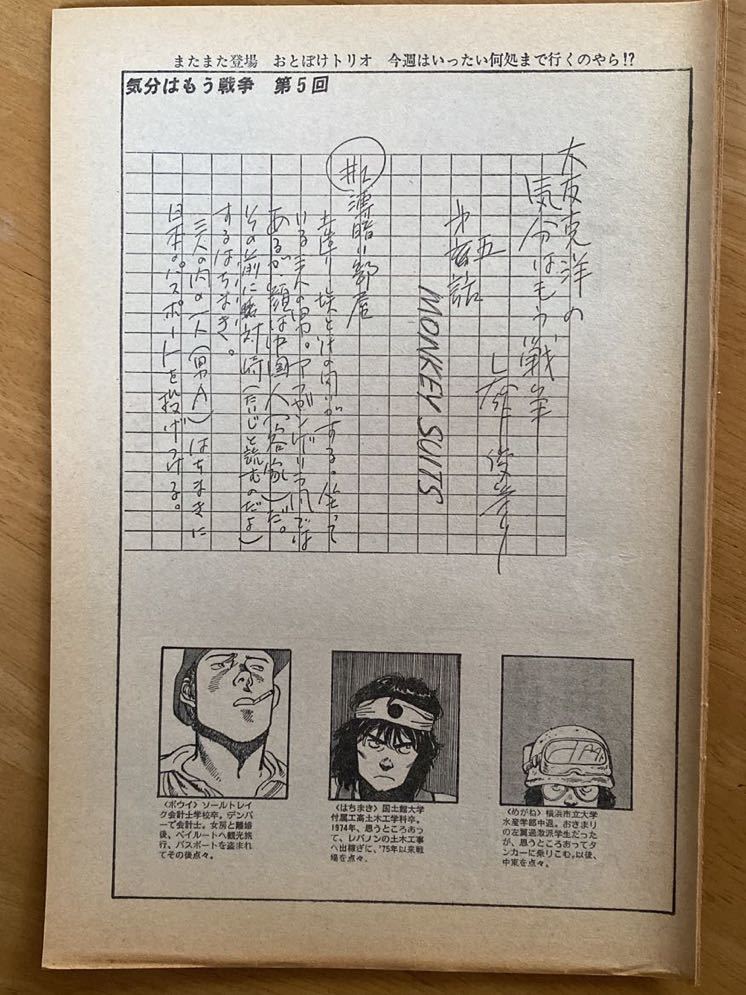 またまた登場　おとぼけトリオ　今週はいったい何処まで行くのやら!?
気分はもう戦争　第5回
大友克洋の
気分はもう戦争
矢作俊彦
五話
MONKEY SUITS
薄暗い部屋
土埃と汗の匂いがする。坐って
いる三人の男。アフガンゲリラ風では
あるが、顔は中国人（客家）だ。
その前に対峙（たいじと読むのだよ）
するはちまき。
三人の内の一人（男A）はちまきに
日本のパスポートを投げつける。
〈ボウイ〉ソールトレイ
ク会計士学校卒。デンバ
ーで会計士。女房と離婚
後、ベイルートへ観光旅
行、パスポートを盗まれ
てその後点々。
〈はちまき〉国士館大学
付属工高土木工学科卒。
1974年、思うところあっ
て、レバノンの土木工事
へ出稼ぎに、'75年以来戦
場を点々。
〈めがね〉横浜市立大学
水産学部中退。おきまり
の左翼過激派学生だった
が、思うところあってタ
ンカーに乗りこむ。以後、
中東を点々。